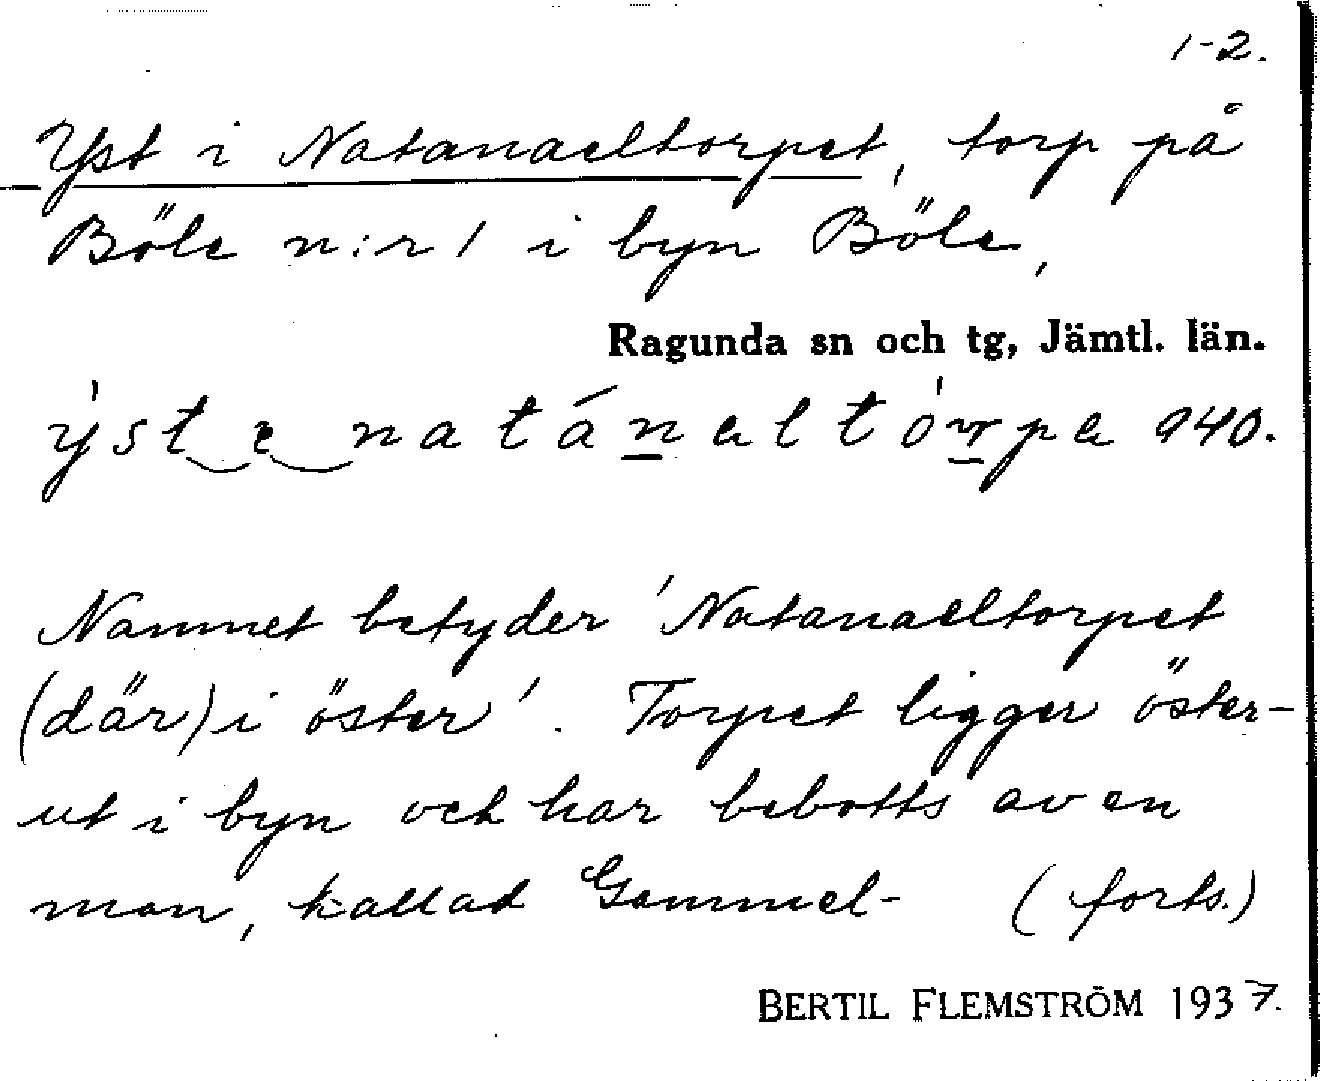 1-2.
Yst i Natanaeltorpet, torp på
Böle n:r 1 i byn Böle,
Ragunda sn och tg, Jämtl. län.
ýst e natánaltórpa 940.
Namnet betyder 'Natanaeltorpet
(där) i öster'. Torpet ligger öster-
ut i byn och har bebotts av en
man, kallad Gammel- (forts.)
BERTIL FLEMSTRÖM 1937.